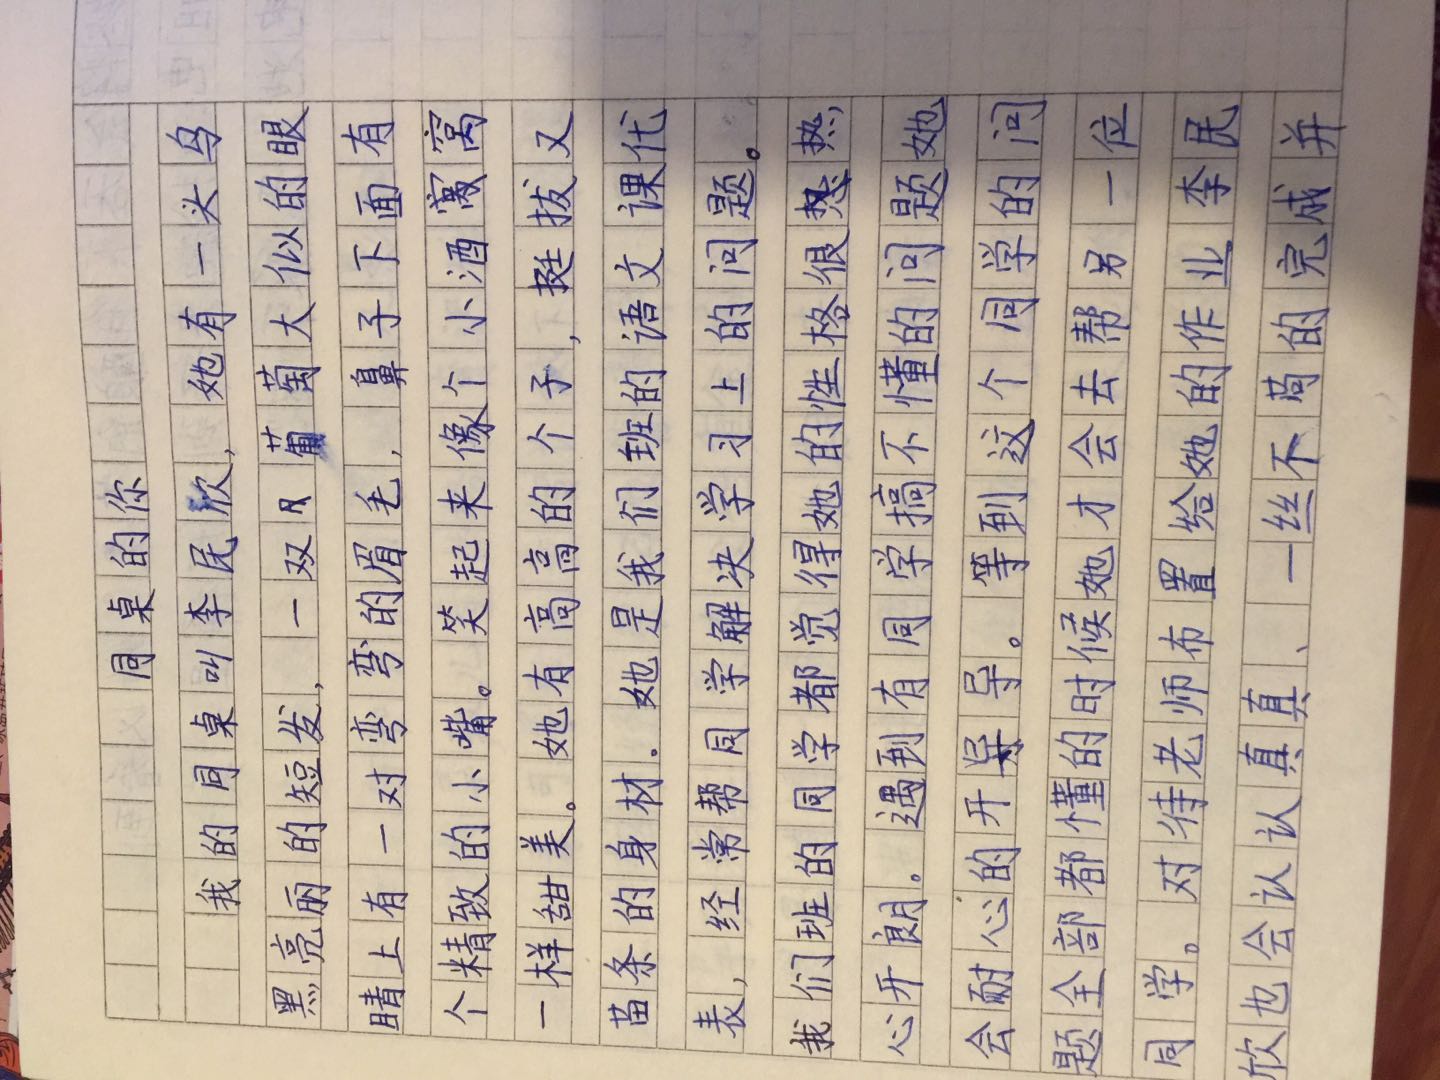 同桌的你
我的同桌叫李民欣,她有一头乌
黑亮丽的短发,一双又葡萄大似的眼
睛上有一对弯弯的眉毛,鼻子下面有
个精致的小嘴。笑起来像个小酒窝窝
一样甜美。她有高高的个子,挺拔又
苗条的身材.她是我们班的语文课代
表,经常帮同学解决学习上的问题。
我们班的同学都觉得她的性格很热
心开朗。遇到有同学搞不懂的问题她
会耐心的开导。等到这个同学的问
题全部都懂的时候她才会去帮另一位
同学。对待老师布置给她的作业李民
欣也会认认真真、一丝不苟的完成并